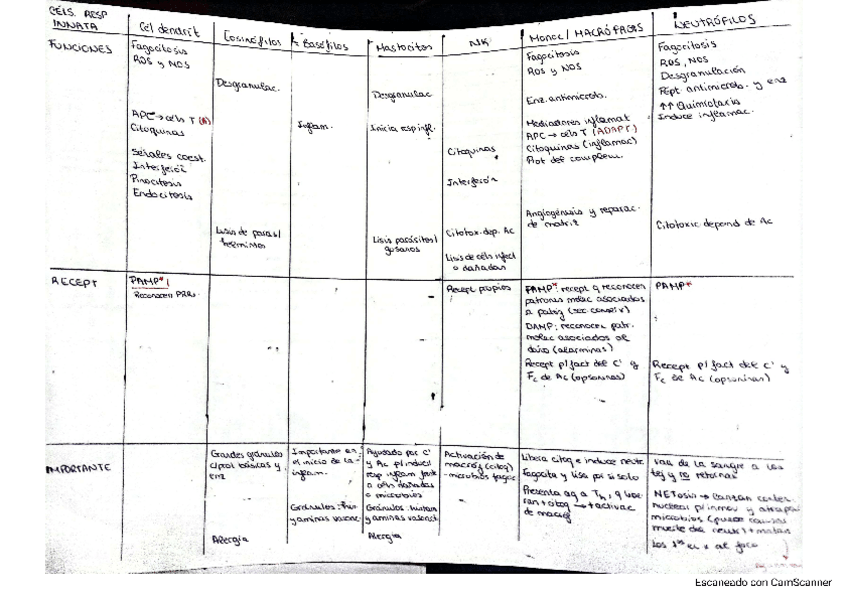 CÉLS. RESP
INNATA
Cél dendrít
Eosinófilos
Basófilos
Mastocitos
NK
MONOC / MACRÓFAGOS
NEUTRÓFILOS
FUNCIONES
Fagocitosis
ROS y NOS
APC → céls T (A)
Citoquinas
Señales coest.
Interferón
Pinocitosis
Endocitosis
Desgranulac.
Lisis de parás/
helmintos
Inflam.
Desgranulac
Inicia resp infl.
Lisis parásitos/
gusanos
Citoquinas
Interferón
Citotox. dep. Ac
Lisis de céls infect
o dañadas
Fagocitosis
ROS y NOS
Enz. antimicrob.
Mediadores inflamat
APC → céls T (ADAPT)
Citoquinas (inflamac)
Prot del complem.
Angiogénesis y reparac.
de matriz
Fagocitosis
ROS, NOS
Desgranulación
Pépt. antimicrob. y enz
↑↑ Quimiotaxis
Induce inflamac.
Citotoxic depend de Ac
RECEPT
PAMP*/
Reconocen PRRs.
Recept propios
PAMP*: recept q reconocen
patrones molec asociados
a patóg
DAMP: reconocen patr.
molec asociados al
daño (alarminas)
Recept p/ fact del C' y
Fc de Ac (opsoninas)
PAMP*
Recept p/ fact del C' y
Fc de Ac (opsoninas)
IMPORTANTE
Grandes gránulos
c/ prot básicas y
enz
Alergia
Importante en
el inicio de la
inflam.
Gránulos:
y aminas vasoac
Ayudado por C'
y Ac p/ inducir
resp inflam frente
a céls dañadas
o microbios
Gránulos:
y aminas vasoact
Alergia
Activación de
macróf (citoq)
- microbios fagoc
Libera citoq e induce
Fagocita y lisa por sí solo
Presenta ag a Th, q
→ + activac
de macróf
Van de la sangre a los
tej y no retornan
NETosis → Lanzan conten.
nuclear p/ inmov y atrapar
microbios (puede causar
muerte del neut) + matan
Los 1ros en x al foco
Escaneado con CamScanner